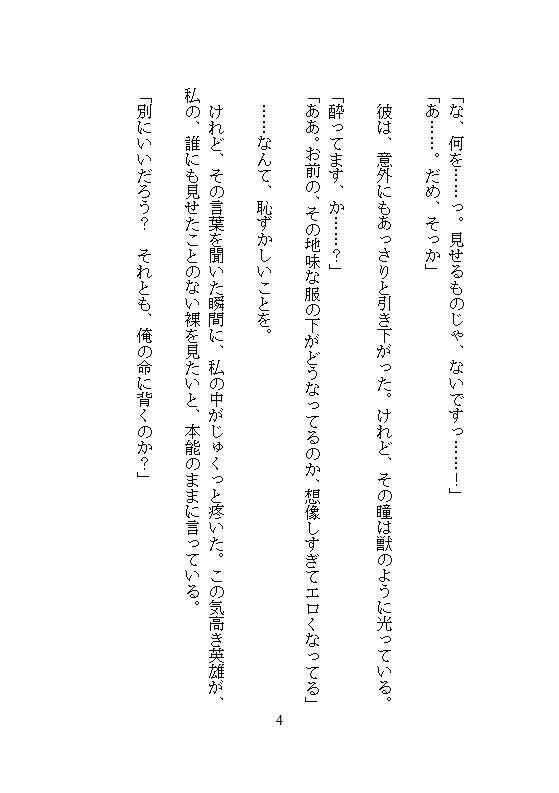 「な、何を……っ。見せるものじゃ、ないですっ……！」
「あ……。だめ、そっか」
彼は、意外にもあっさりと引き下がった。けれど、その瞳は獣のように光っている。
「酔ってます、か……？」
「ああ。お前の、その地味な服の下がどうなってるのか、想像しすぎてエロくなってる」
……なんて、恥ずかしいことを。
けれど、その言葉を聞いた瞬間に、私の中がじゅくっと疼いた。この気高き英雄が、
私の、誰にも見せたことのない裸を見たいと、本能のままに言っている。
「別にいいだろう？　それとも、俺の命に背くのか？」
4